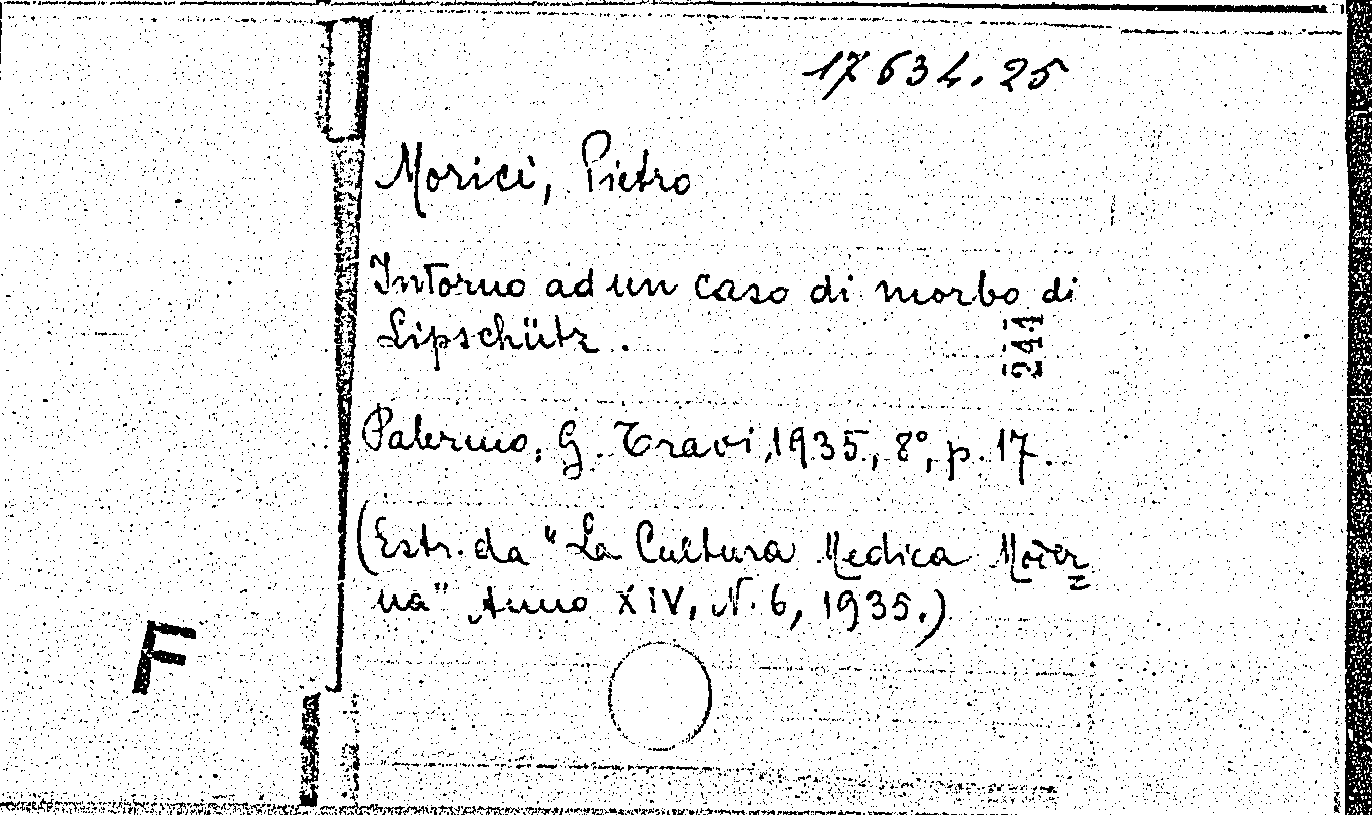 17634.25
Morici, Pietro
Intorno ad un caso di morbo di
Lipschütz.
244
Palermo, G. Travi, 1935, 8°, p. 17.
(Estr. da "La Cultura Medica Moder=
na" Anno XIV, N. 6, 1935.)
F